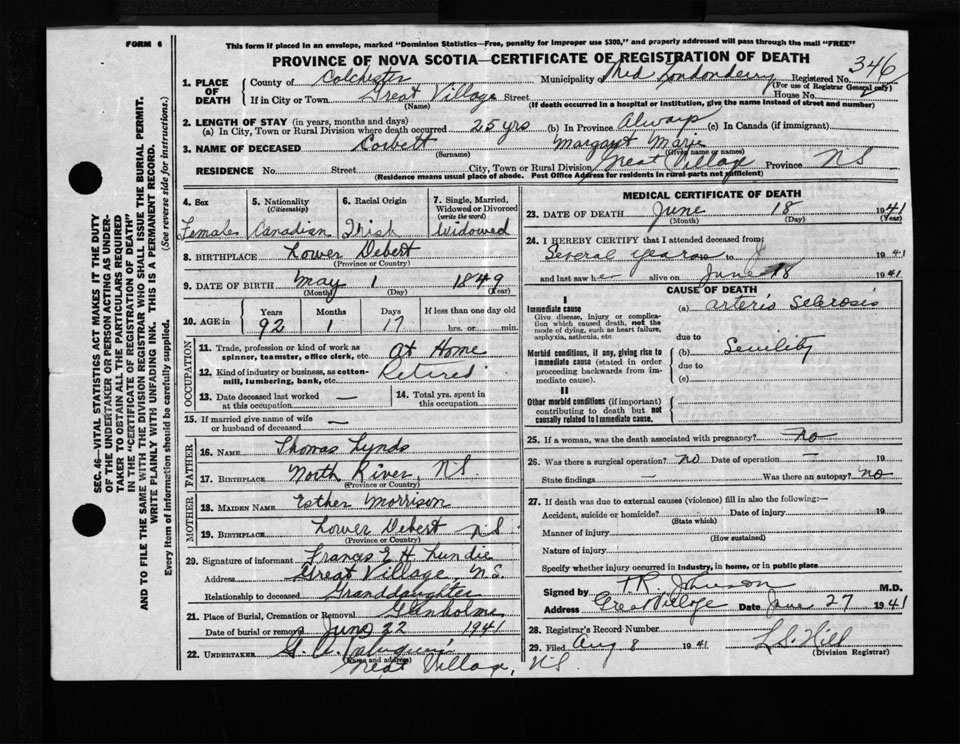 FORM 6
This form if placed in an envelope, marked "Dominion Statistics—Free, penalty for improper use $300," and properly addressed will pass through the mail "FREE"
PROVINCE OF NOVA SCOTIA—CERTIFICATE OF REGISTRATION OF DEATH
346
SEC. 46—VITAL STATISTICS ACT MAKES IT THE DUTY
OF THE UNDERTAKER OR PERSON ACTING AS UNDER-
TAKER TO OBTAIN ALL THE PARTICULARS REQUIRED
IN THE "CERTIFICATE OF REGISTRATION OF DEATH"
AND TO FILE THE SAME WITH THE DIVISION REGISTRAR WHO SHALL ISSUE THE BURIAL PERMIT.
WRITE PLAINLY WITH UNFADING INK. THIS IS A PERMANENT RECORD.
Every item of information should be carefully supplied. (See reverse side for instructions.)
1. PLACE OF DEATH
County of Colchester Municipality of Londonderry Registered No.
(For use of Registrar General only)
If in City or Town Great Village Street House No.
(Name) (If death occurred in a hospital or institution, give the name instead of street and number)
2. LENGTH OF STAY (in years, months and days)
(a) In City, Town or Rural Division where death occurred 25 yrs (b) In Province Always (c) In Canada (if immigrant)
3. NAME OF DECEASED Corbett Margaret Marie
Surname (Given name or names)
RESIDENCE No. Street City, Town or Rural Division Great Village Province N S
(Residence means usual place of abode. Post Office Address for residents in rural parts not sufficient)
4. Sex
Female
5. Nationality
(Citizenship)
Canadian
6. Racial Origin
Irish
7. Single, Married,
Widowed or Divorced
(write the word)
Widowed
8. BIRTHPLACE Lower Debert
(Province or Country)
9. DATE OF BIRTH May 1 1849
(Month) (Day) (Year)
10. AGE in Years Months Days If less than one day old
92 1 17 hrs. or min.
OCCUPATION
11. Trade, profession or kind of work as
spinner, teamster, office clerk, etc. At Home
12. Kind of industry or business, as cotton-
mill, lumbering, bank, etc. Retired
13. Date deceased last worked
at this occupation —
14. Total yrs. spent in
this occupation
15. If married give name of wife
or husband of deceased —
FATHER
16. NAME Thomas Lynds
17. BIRTHPLACE North River, N.S.
(Province or Country)
MOTHER
18. MAIDEN NAME Esther Morrison
19. BIRTHPLACE Lower Debert N S
(Province or Country)
20. Signature of informant Frances E. H. Lundie
Address Great Village, N.S.
Relationship to deceased Granddaughter
21. Place of Burial, Cremation or Removal Glenholme
Date of burial or removal June 22 1941
22. UNDERTAKER
(Name and address)
Great Village, N.S.
MEDICAL CERTIFICATE OF DEATH
23. DATE OF DEATH June 18 1941
(Month) (Day) (Year)
24. I HEREBY CERTIFY that I attended deceased from:
Several years to 1941
and last saw her alive on June 18 1941
CAUSE OF DEATH
I
Immediate cause
Give disease, injury or complica-
tion which caused death, not the
mode of dying, such as heart failure,
asphyxia, asthenia, etc.
(a) Arterio Sclerosis
due to
Morbid conditions, if any, giving rise to
immediate cause (stated in order
proceeding backwards from im-
mediate cause).
(b) Senility
due to
(c)
II
Other morbid conditions (if important)
contributing to death but not
causally related to immediate cause.
25. If a woman, was the death associated with pregnancy? no
26. Was there a surgical operation? no Date of operation — 19
State findings — Was there an autopsy? no
27. If death was due to external causes (violence) fill in also the following:—
Accident, suicide or homicide? Date of injury 19
(State which)
Manner of injury
(How sustained)
Nature of injury
Specify whether injury occurred in industry, in home, or in public place
Signed by T R Johnson M.D.
Address Great Village Date June 27 1941
28. Registrar's Record Number
29. Filed Aug 8 1941 L S. Hill
(Division Registrar)